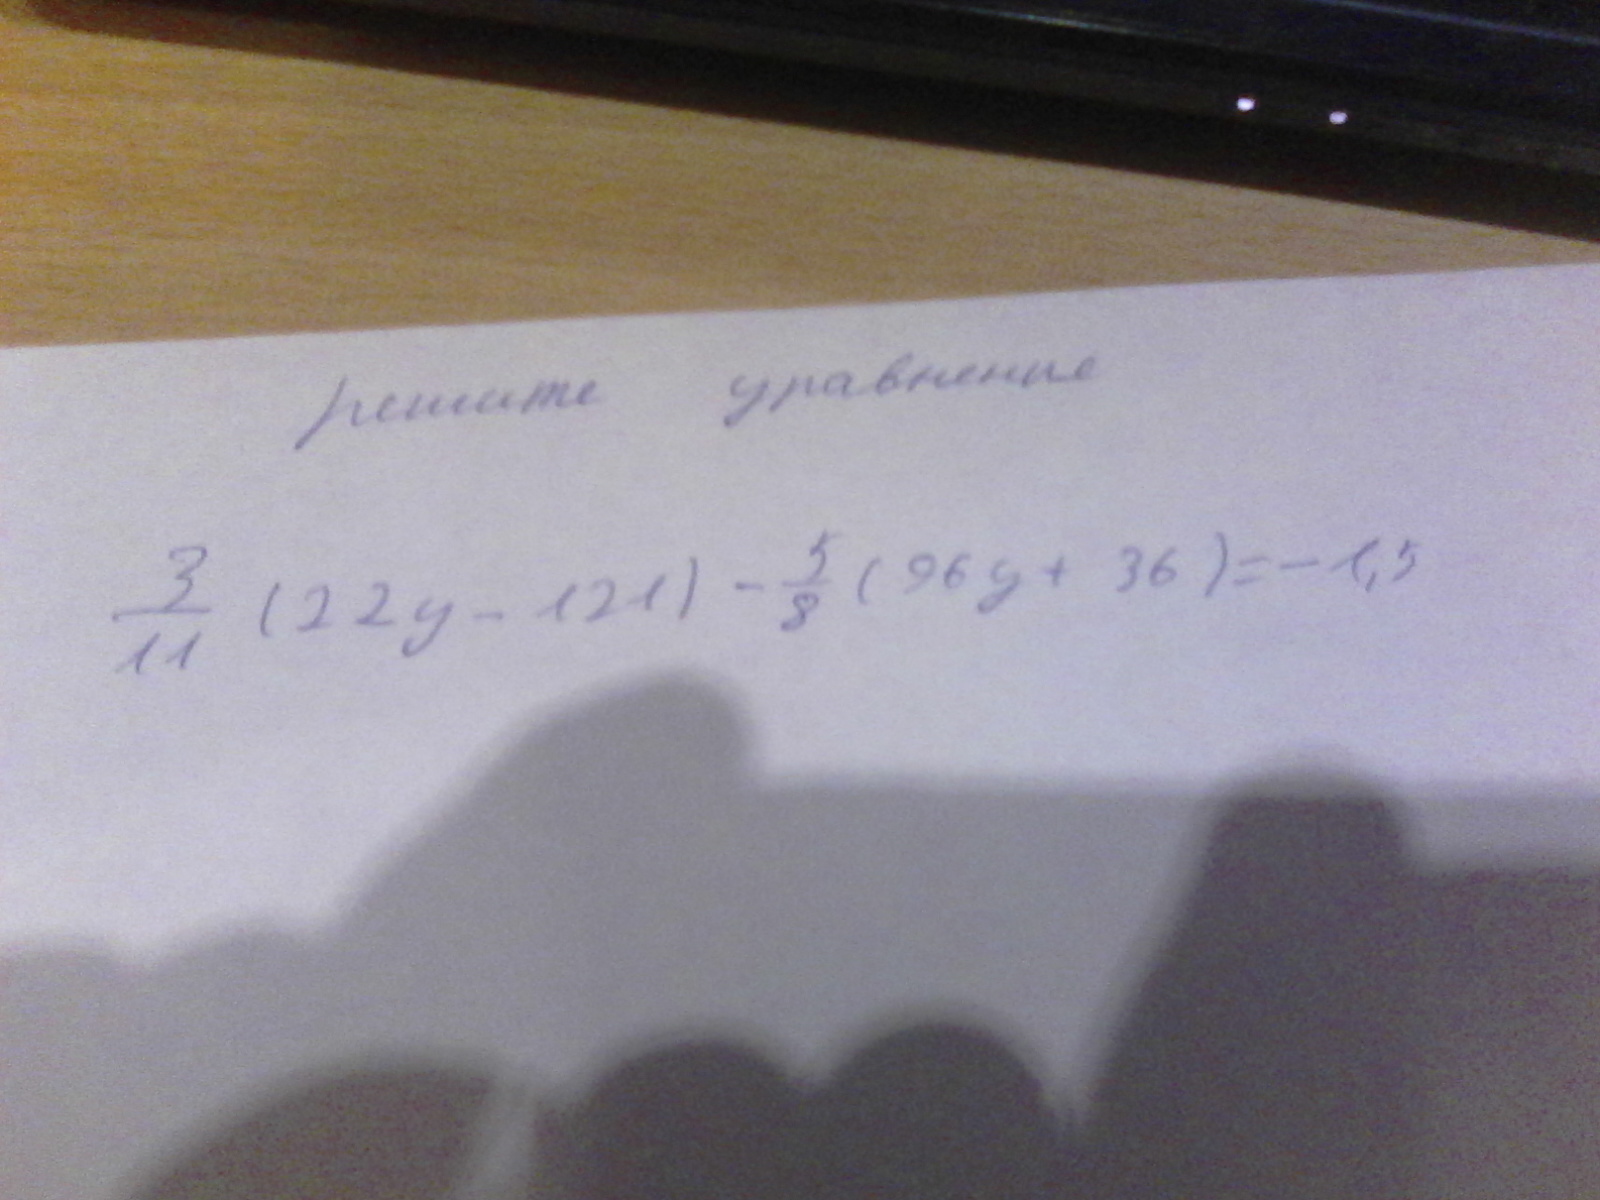 решите уравнение
3/11 (22y - 121) - 5/8 (96y + 36) = - 1,5